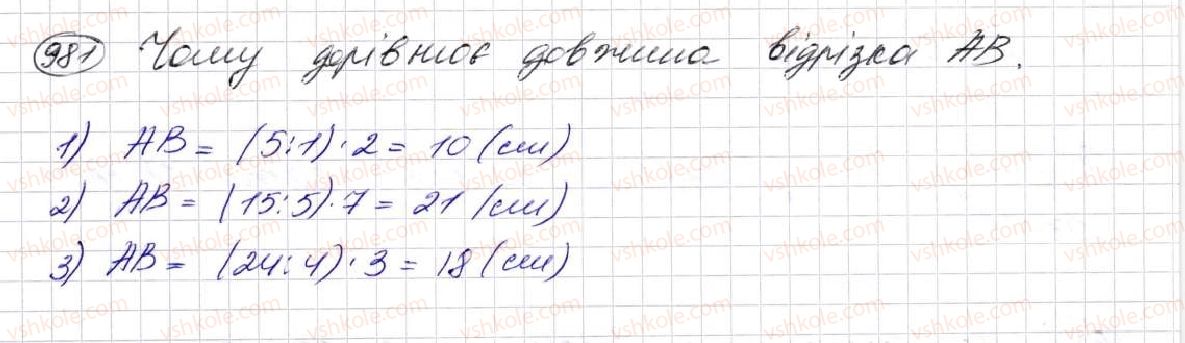 981 Чому дорівнює довжина відрізка AB.
1) AB = (5:1)·2 = 10 (см)
2) AB = (15:5)·7 = 21 (см)
3) AB = (24:4)·3 = 18 (см)